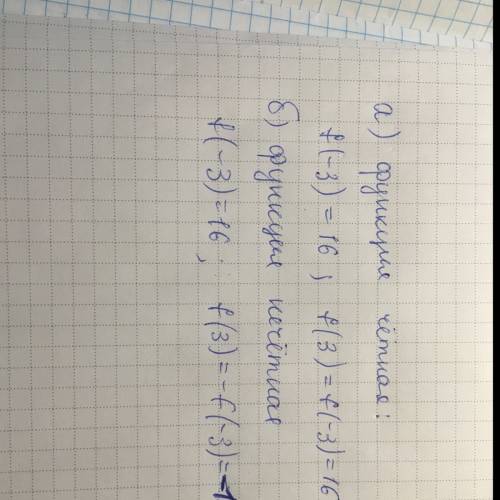 а) функция чётная:
f(-3) = 16; f(3) = f(-3) = 16
б) функция нечётная
f(-3) = 16; f(3) = -f(-3) = -1